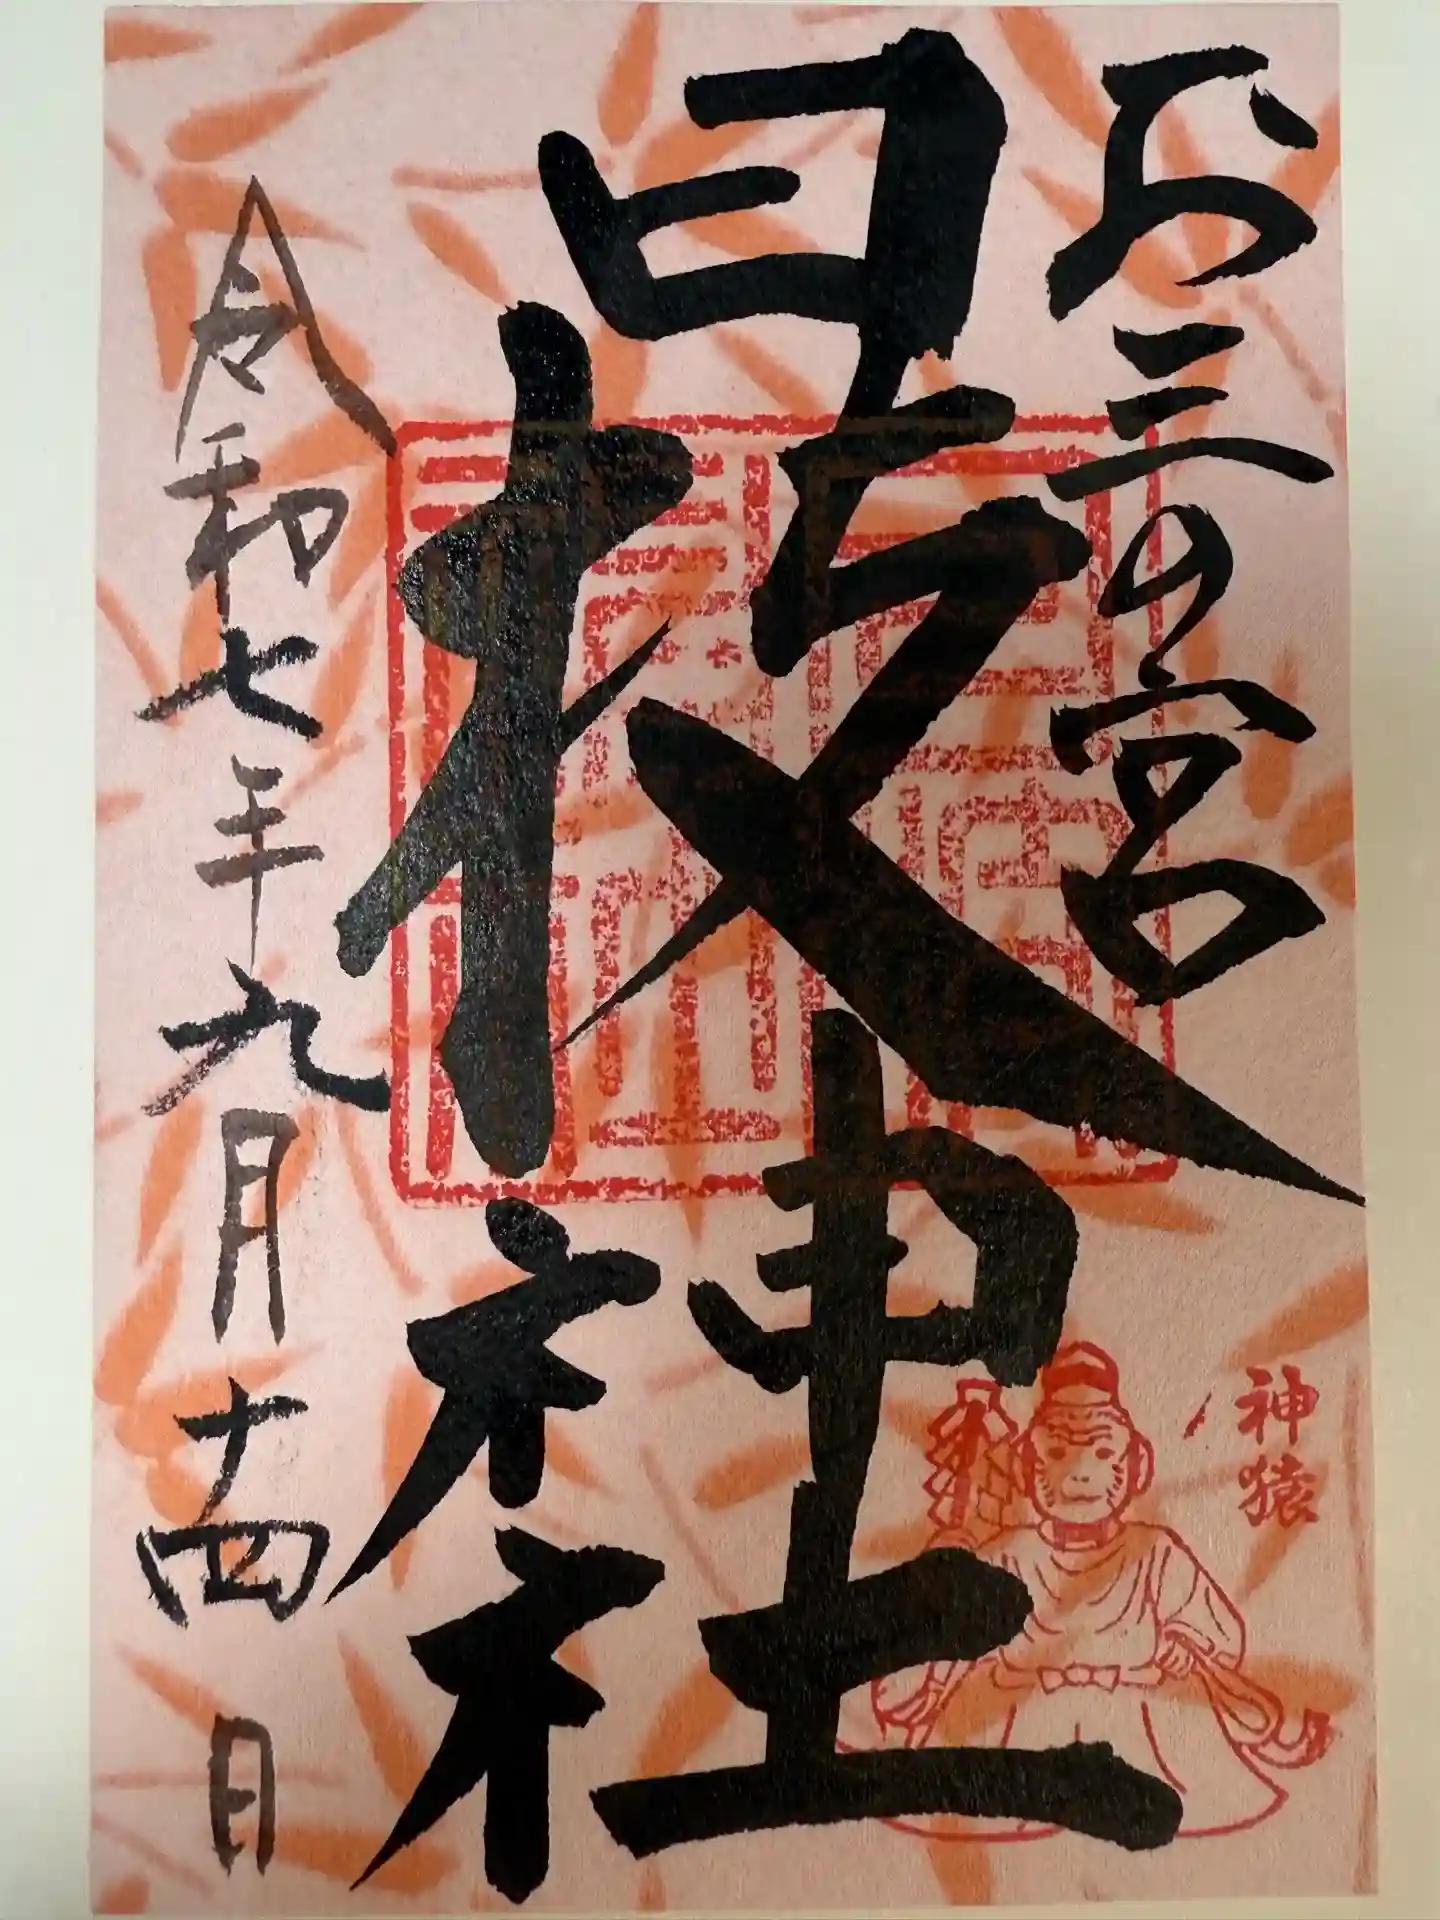 お三の宮
日枝神社
神猿
令和七年九月十四日